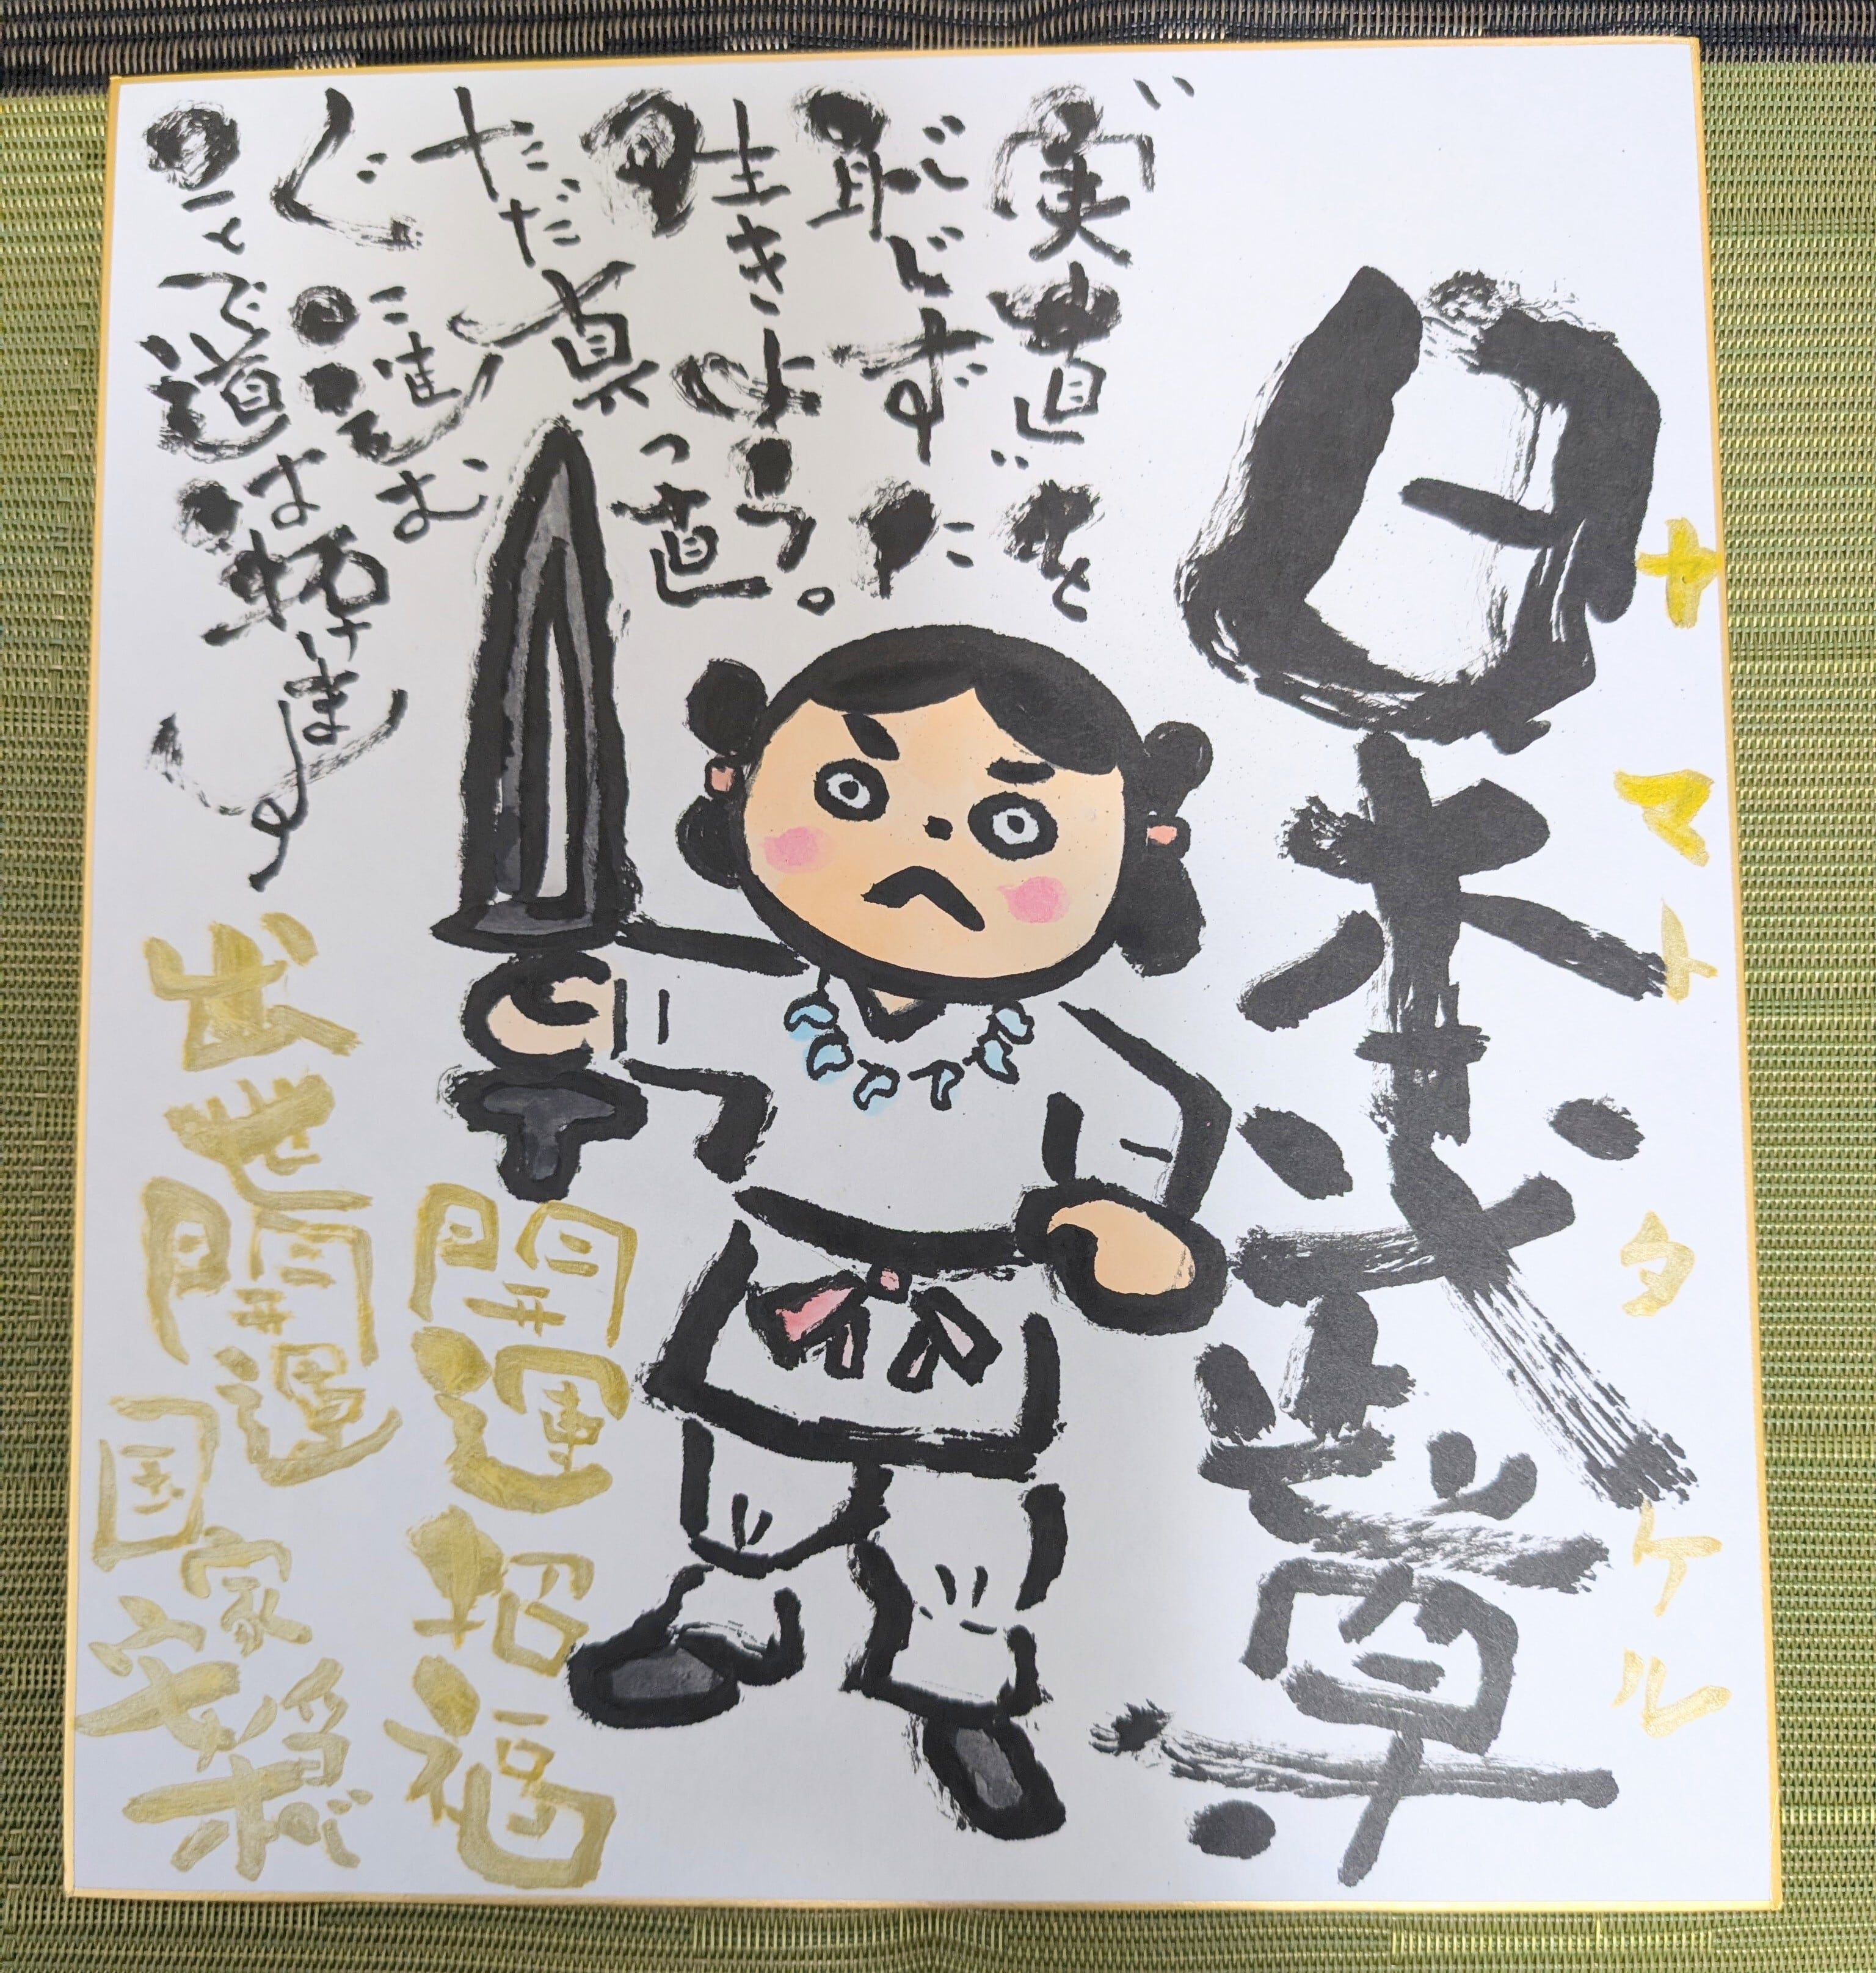 日本武尊
ヤマトタケル
"実直"を
恥じずに
生きよう。
ただ真っ直
ぐに進む
ことで道は拓けます
開運招福
出世開運
国家安穏